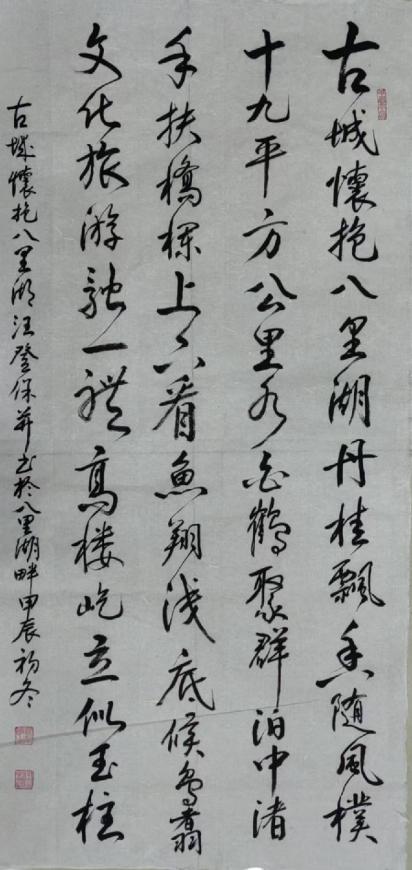 古城懷抱八里湖丹桂飄香随風樸
十九平方公里水白鶴聚群泊中渚
手扶橋欄上下看魚翔浅底候鸟翥
文化旅游融一體高楼屹立似玉柱
古城懷抱八里湖汪登保并书於八里湖畔甲辰初冬